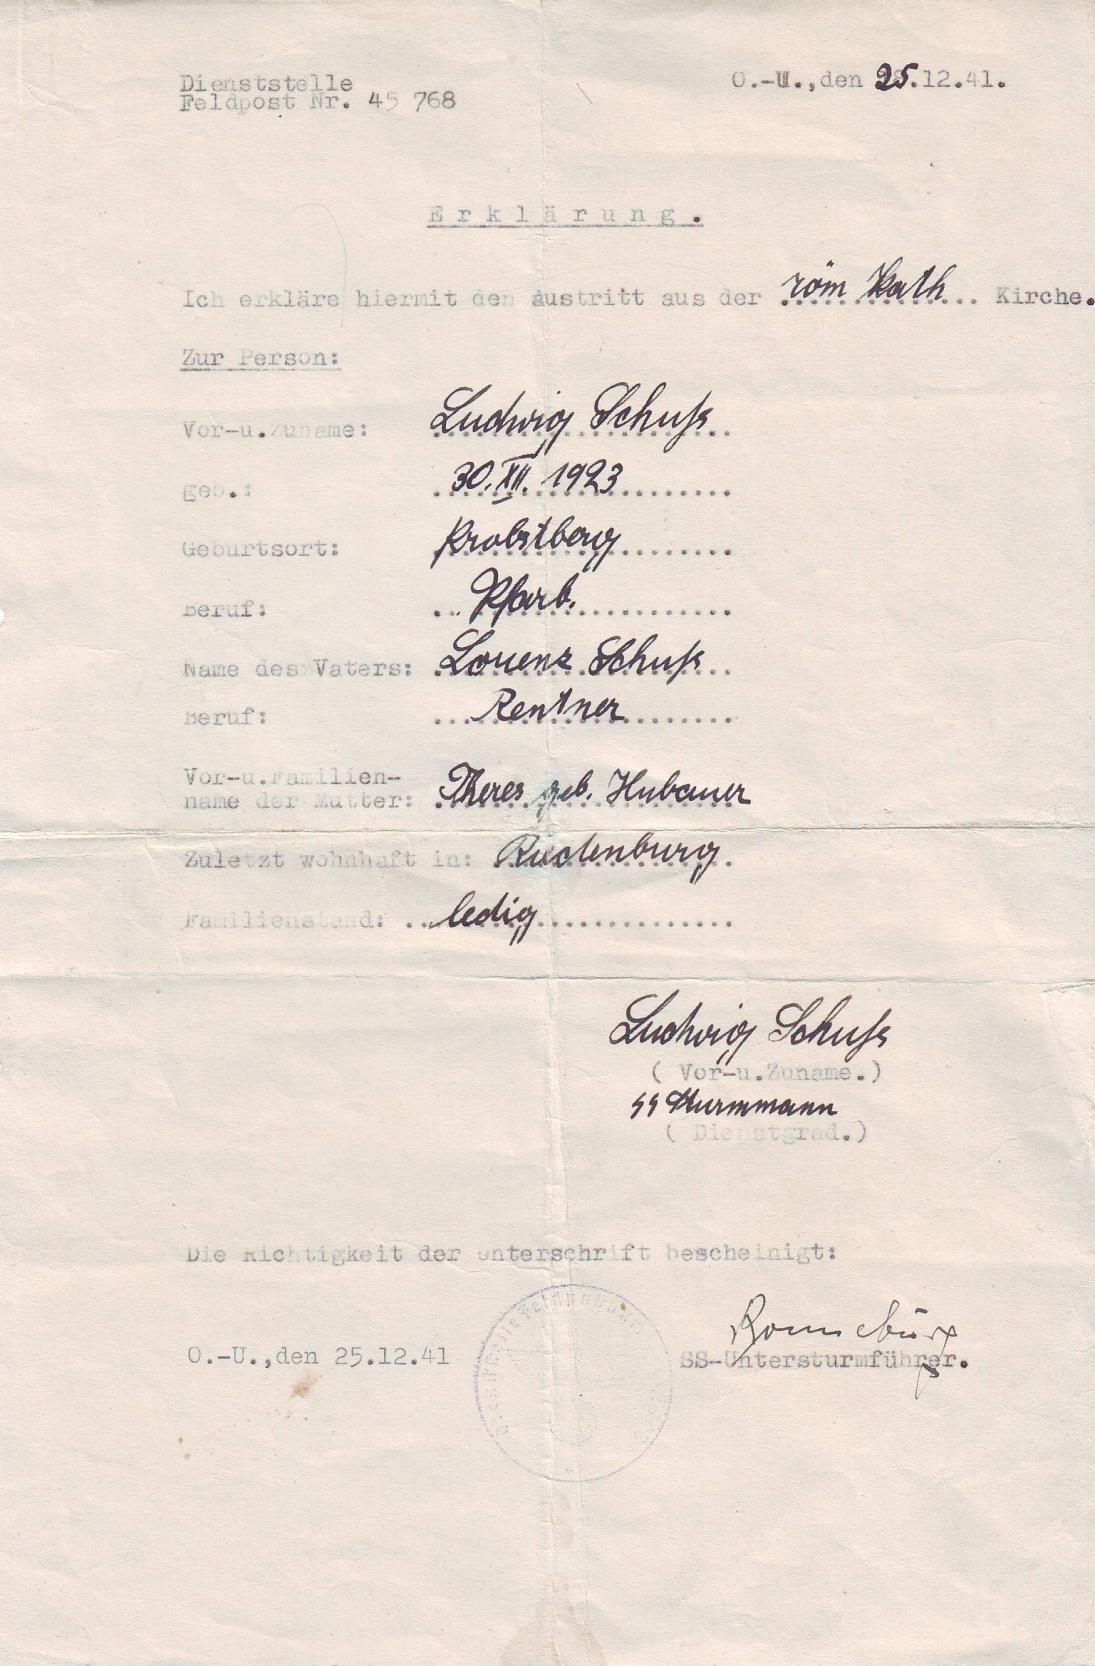 Dienststelle
Feldpost Nr. 45 768
O.-U.,den 25.12.41.
Erklärung.
Ich erkläre hiermit den Austritt aus der röm Kath ... Kirche.
Zur Person:
Vor-u.Zuname: Ludwig Schuß
geb.: 30.XII.1923
Geburtsort: Probstberg
Beruf: Pfarb.
Name des Vaters: Lorenz Schuß
Beruf: Rentner
Vor-u.Familien-
name der Mutter: Theres geb. Hubauer
Zuletzt wohnhaft in: Riedenburg
Familienstand: ledig
Ludwig Schuß
( Vor-u.Zuname.)
SS Sturmmann
( Dienstgrad.)
Die Richtigkeit der Unterschrift bescheinigt:
O.-U.,den 25.12.41
SS-Untersturmführer.